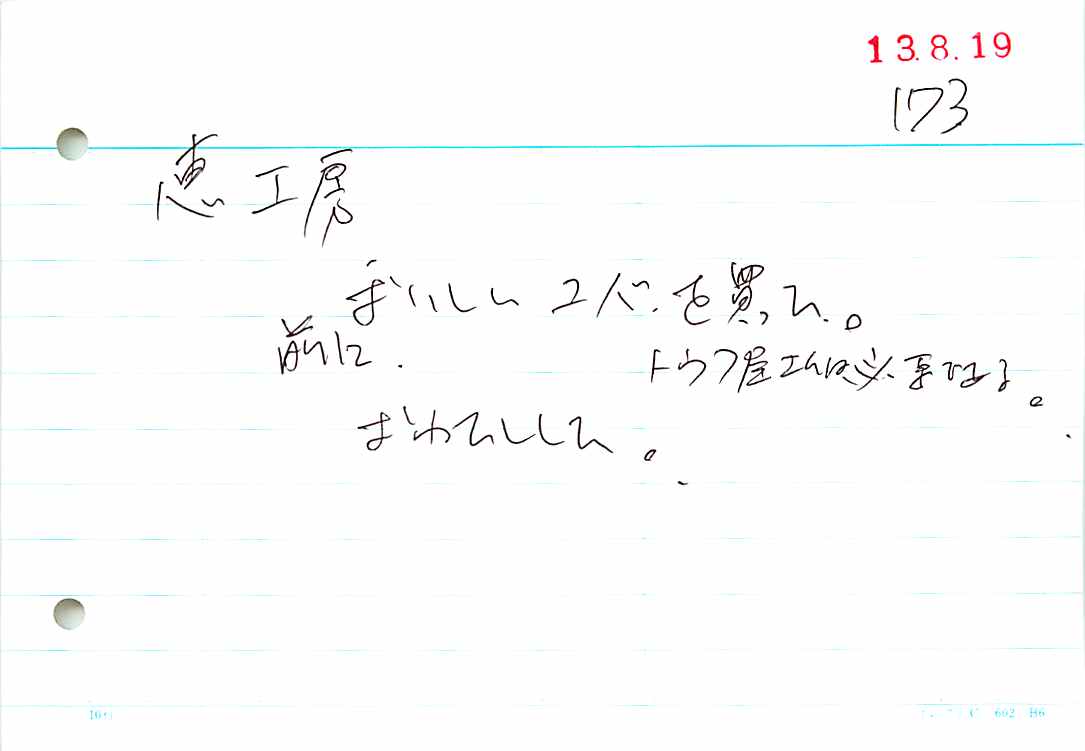 13.8.19
173
恵工房
おいしいそばを買った。
前に.
トウフ屋さんは必要である。
おわたしした。
602 H6